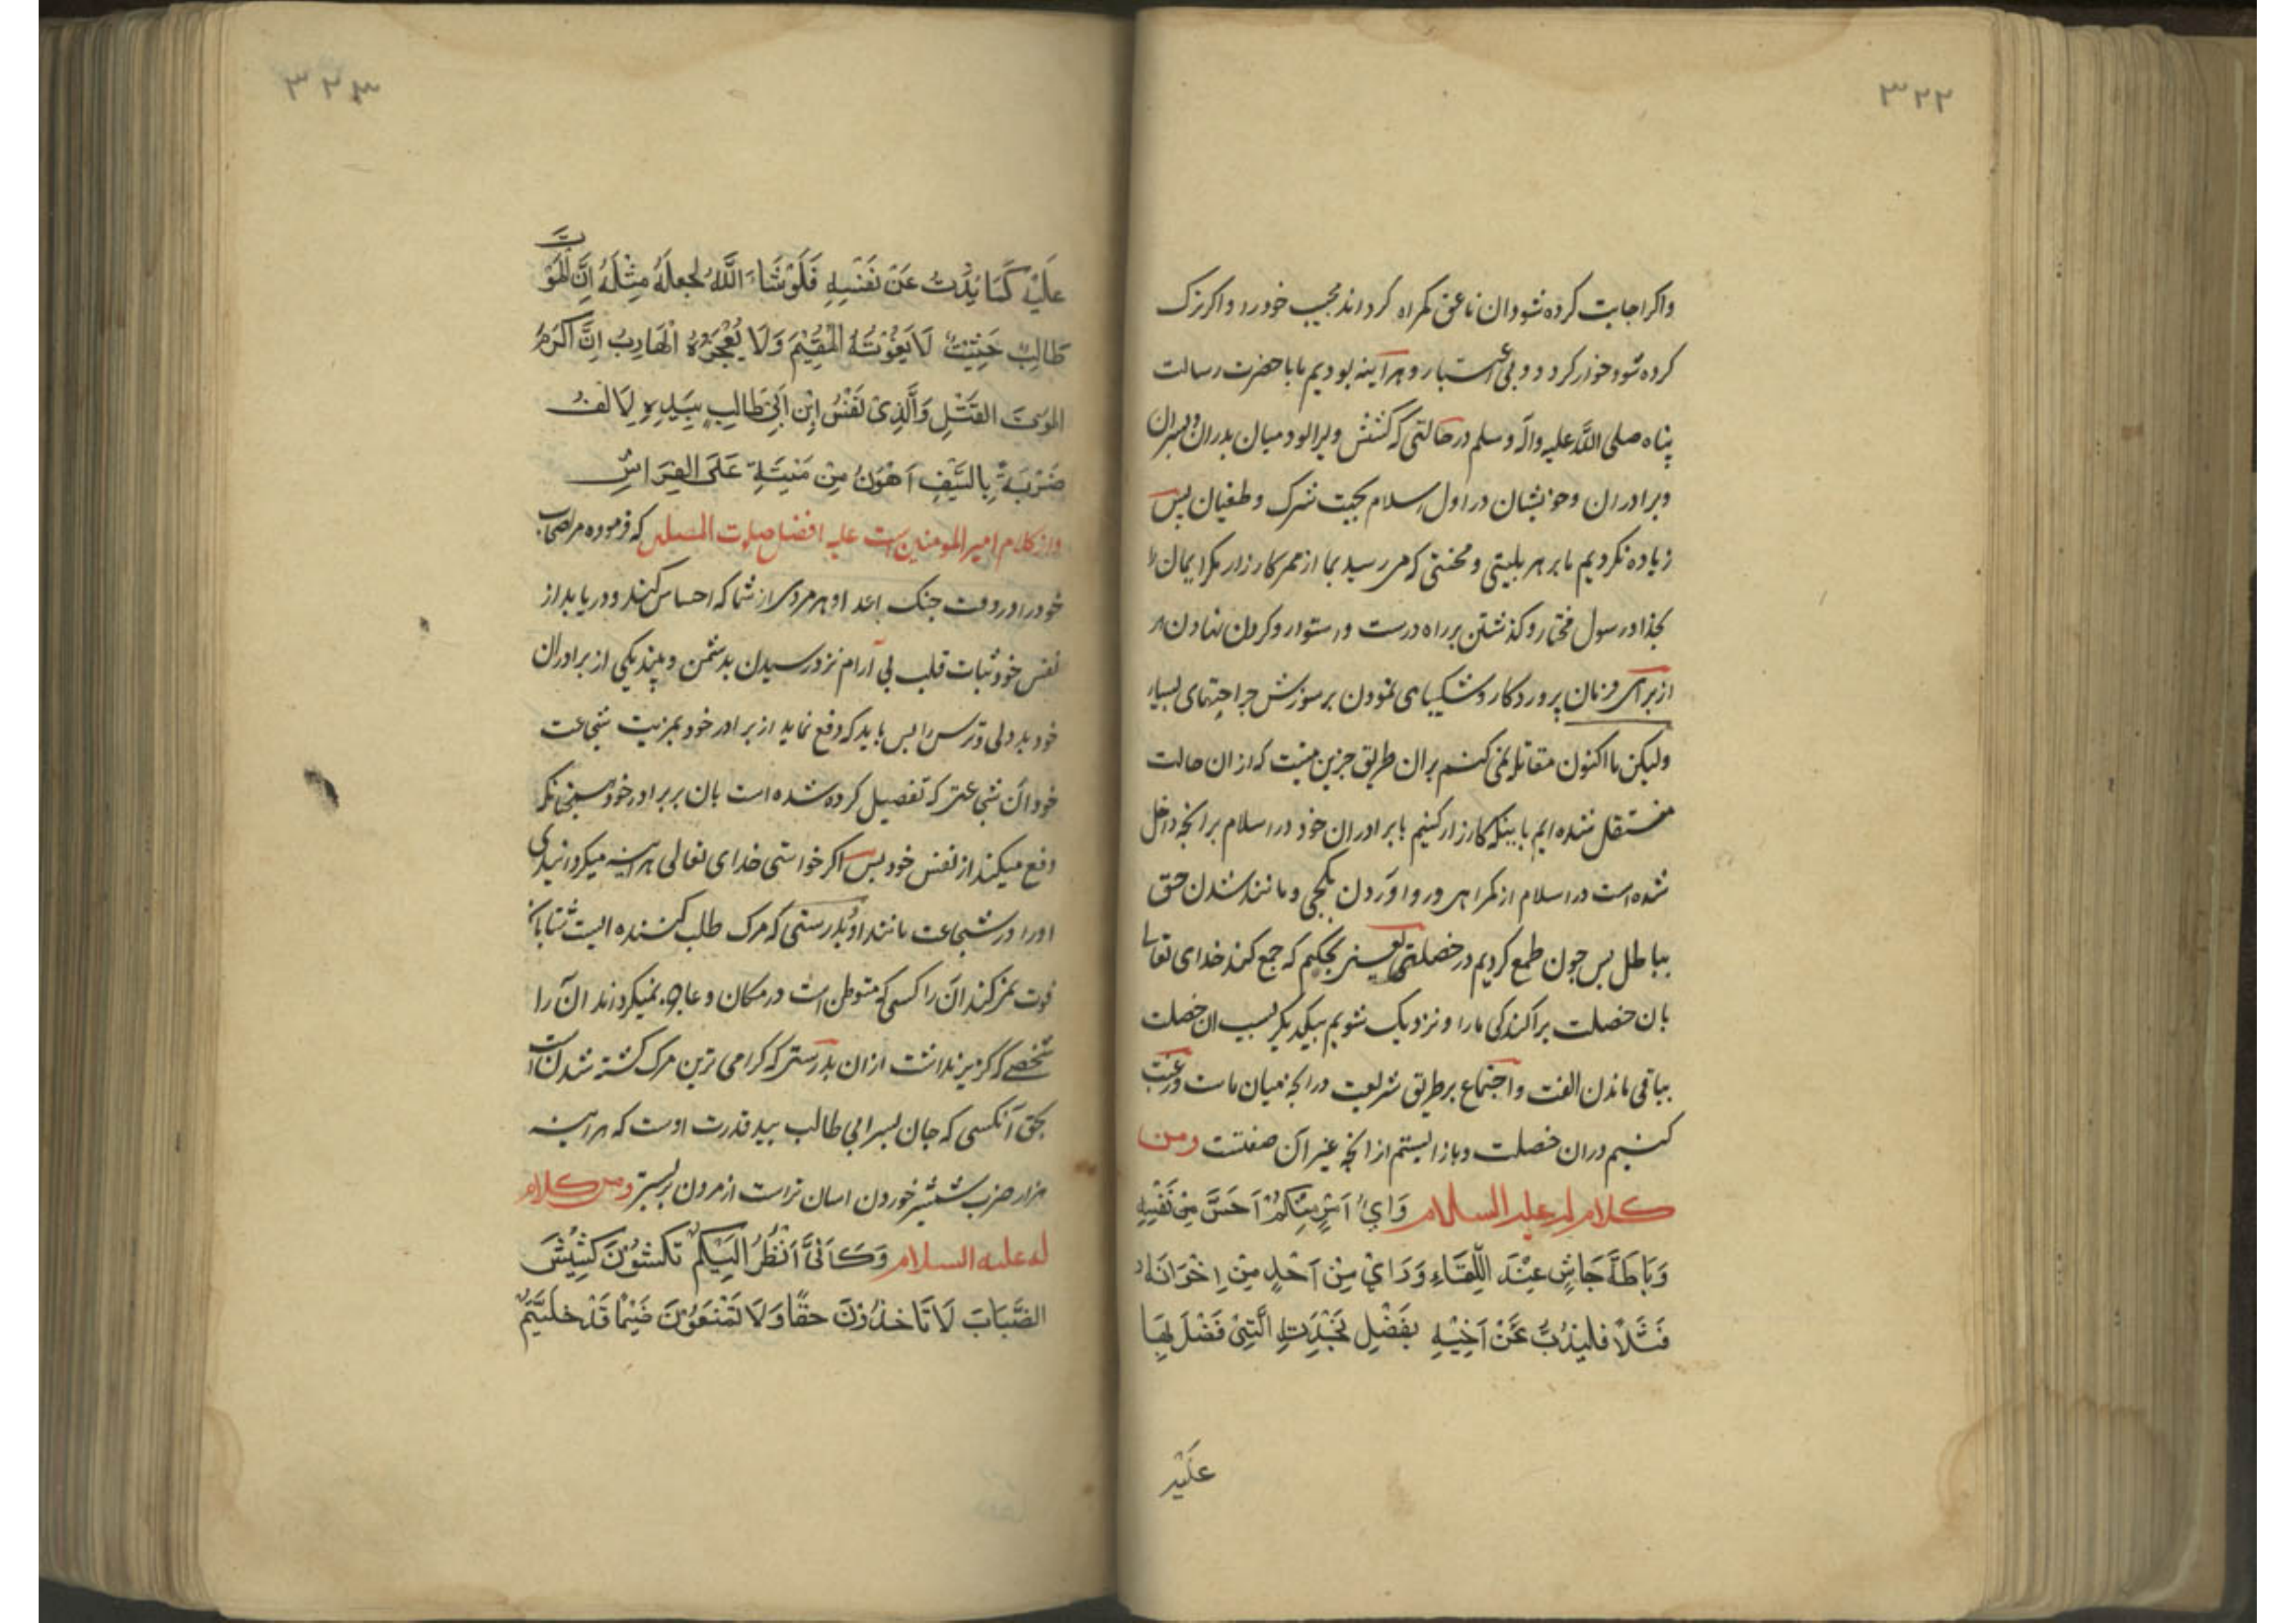 ۳۲۲
واکر اجابت کرده شود ان ناعق کمراه کرداند مجیب خود را و اکر ترک
کرده شود خوار کردد و بی اعتبار و هر آینه بودیم ما با حضرت رسالت
پناه صلی الله علیه واله وسلم در حالتی که کشش ویرا لود میان پدران و پسران
وبرادران وخویشان در اول اسلام بجهت شرک وطغیان پس
زیاده نکردیم ما بر هر بلیتی و محنتی که می رسید بما از ممر کارزار مکر ایمان را
بخدا و رسول مختار و کذشتن بر راه درست و استوار و کردن نهادن مر
از برای فرمان پروردکار و شکیبای نمودن بر سوزش جراحتهای بسیار
ولیکن ما اکنون مقاتله نمی کنیم بران طریق جزین نیست که از ان حالت
منتقل شده ایم باینکه کارزار کنیم با برادران خود در اسلام بر انچه داخل
شده است در اسلام از کمراهی و روا وردن بکجی و مانند شدن حق
بباطل پس چون طمع کردیم در خصلتی یعنی بحکم که جمع کند خدای تعالی
بان خصلت پراکندکی ما را و نزدیک شویم بیکدیکر بسبب ان خصلت
بباقی ماندن الفت واجتماع بر طریق شریعت در انچه میان ماست ورغبت
کنیم دران خصلت و باز ایستیم از انچه غیر آن صفتست ومن
کلام له علیه السلام وَایُّ امْرِئٍ مِنْكُمْ اَحَسَّ مِنْ نَفْسِهِ
رَبَاطَةَ جَاشٍ عِنْدَ اللِّقَاءِ وَرَایْ مِنْ اَحَدٍ مِنْ اِخْوَانِهِ
فَشَلًا فلیذُبَّ عَنْ اَخِیْهِ بِفَضْلِ نَجْدَتِهِ الَّتِیْ فَضْلَ بِهَا
عَلَیْهِ
۳۲۳
عَلَیْهِ كَمَا یَذُبُّ عَنْ نَفْسِهِ فَلَوْشَاءَ اللّٰهُ لجعلَهُ مِثْلَهُ اِنَّ الْمَوْتَ
طَالِبٌ حَثِیْثٌ لَا یَفُوْتُهُ الْمُقِیْمَ وَلَا یُعْجِزُهُ الْهَارِبُ اِنَّ اكْرَمَ
المَوْتِ القَتْلِ وَالَّذِیْ نَفْسُ ابْنِ اَبِیْ طَالِبٍ بِیَدِهِ لِاَلْفُ
ضَرْبَةٍ بِالسَّیْفِ اَهْوَنُ مِنْ مَنِیَّةٍ عَلَی الفِرَاشِ
واز کلام امیر المومنین است علیه افضل صلوت المصلین که فرموده مر اصحاب
خود را در وقت جنک اعدا و هر مردی از شما که احساس کند و دریابد از
نفس خود ثبات قلب بی آرام نزد رسیدن بدشمن و بیند یکی از برادران
خود بددلی و ترس را پس باید که دفع نماید از برادر خود بمزیت شجاعت
خود آن شجاعتی که تفضیل کرده شده است بان بر برادر خود همچنانکه
دفع میکند از نفس خود پس اکر خواستی خدای تعالی هر آینه میکردانیدی
اورا در شجاعت مانند او بدرستی که مرک طلب کننده ایست شتابان
فوت نمی کند آن را کسی که متوطن است در مکان و عاجز نمیکرداند آن را
شخصی که کریزنداشت از ان بدرستی که کرامی ترین مرک کشته شدن است
بحق آنکسی که جان پسر ابی طالب بید قدرت اوست که هر آینه
هزار ضرب شمشیر خوردن اسان تر است از مردن بر بستر ومن کلام
له علیه السلام وَكَاَنِّیْ اَنْظُرُ اِلَیْكُمْ تَكِشُّوْنَ كَشِیْشَ
الضَّبَابَ لَا تَاخذُوْنَ حقًّا وَلَا تَمْنَعُوْنَ ضَیْمًا قَدْ خلّیْتُمْ